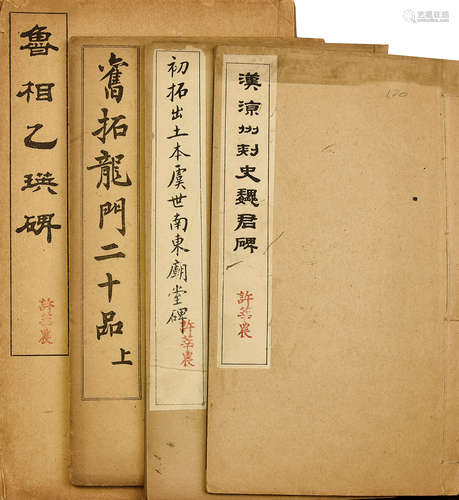 漢涼州刺史魏君碑
許莘農
初拓出土本虞世南東廟堂碑
許莘農
舊拓龍門二十品
上
魯相乙瑛碑
許莘農